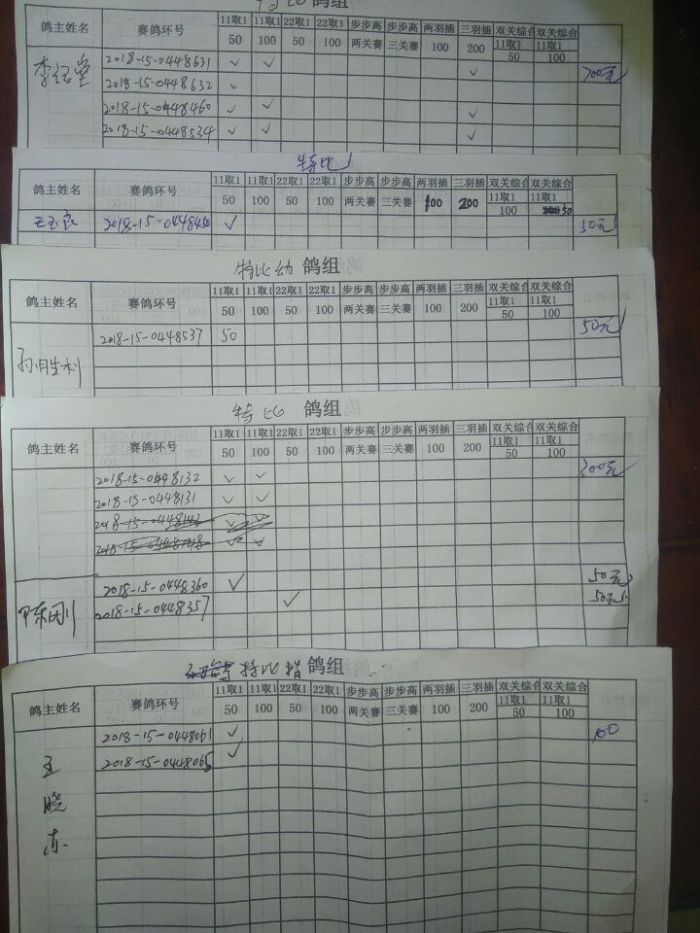 鸽组
鸽主姓名 赛鸽环号 11取1 11取1 22取1 22取1 步步高 步步高 两羽插 三羽插 双关综合 双关综合
50 100 50 100 两关赛 三关赛 100 200 11取1 11取1
50 100
2018-15-0448631 ✓ ✓ 700元
2018-15-0448632 ✓ ✓
2018-15-0448460 ✓ ✓ ✓
2018-15-0448534 ✓ ✓ ✓
特比
鸽主姓名 赛鸽环号 11取1 11取1 22取1 22取1 步步高 步步高 两羽插 三羽插 双关综合 双关综合
50 100 50 100 两关赛 三关赛 100 200 11取1 11取1
100 50
2018-15-0448450 ✓ 50元
特比幼 鸽组
鸽主姓名 赛鸽环号 11取1 11取1 22取1 22取1 步步高 步步高 两羽插 三羽插 双关综合 双关综合
50 100 50 100 两关赛 三关赛 100 200 11取1 11取1
50 100
2018-15-0448537 50 50元
孙胜利
特比 鸽组
鸽主姓名 赛鸽环号 11取1 11取1 22取1 22取1 步步高 步步高 两羽插 三羽插 双关综合 双关综合
50 100 50 100 两关赛 三关赛 100 200 11取1 11取1
50 100
2018-15-0448132 ✓ ✓ 300元
2018-15-0448131 ✓ ✓
2018-15-0448360 ✓ 50元
陈刚 2018-15-0448357 ✓ 50元
特比 鸽组
鸽主姓名 赛鸽环号 11取1 11取1 22取1 22取1 步步高 步步高 两羽插 三羽插 双关综合 双关综合
50 100 50 100 两关赛 三关赛 100 200 11取1 11取1
50 100
2018-15-0448061 ✓ 100
2018-15-0448065 ✓
王晓东